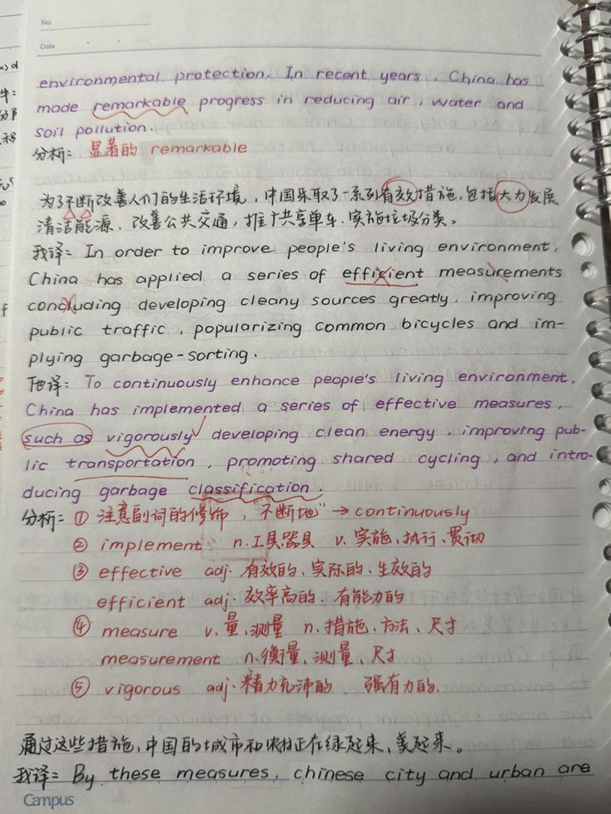 No.
Date
environmental protection. In recent years, China has
made remarkable progress in reducing air, water and
soil pollution.
分析: 显著的 remarkable
为了不断改善人们的生活环境，中国采取了一系列有效措施，包括大力发展
清洁能源、改善公共交通，推广共享单车、实施垃圾分类。
我译: In order to improve people's living environment,
China has applied a series of effixient measurements
concluding developing cleany sources greatly, improving
public traffic, popularizing common bicycles and im-
plying garbage-sorting.
他译: To continuously enhance people's living environment,
China has implemented a series of effective measures,
such as vigorously developing clean energy, improving pub-
lic transportation, promoting shared cycling, and intro-
ducing garbage classification.
分析: ① 注意副词的修饰，"不断地" → continuously
② implement n.工具器具 v.实施、执行、贯彻
③ effective adj.有效的、实际的、生效的
efficient adj.效率高的、有能力的
④ measure v.量、测量 n.措施、方法、尺寸
measurement n.衡量、测量、尺寸
⑤ vigorous adj.精力充沛的、强有力的.
通过这些措施，中国的城市和农村正在绿起来、美起来。
我译: By these measures, chinese city and urban are
Campus